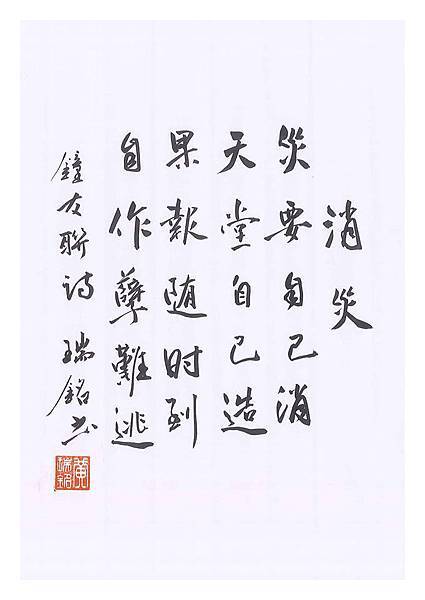 消災
災要自己消
天堂自己造
果報随时到
自作孽難逃
鐘友聯詩 瑞銘书
黃瑞銘